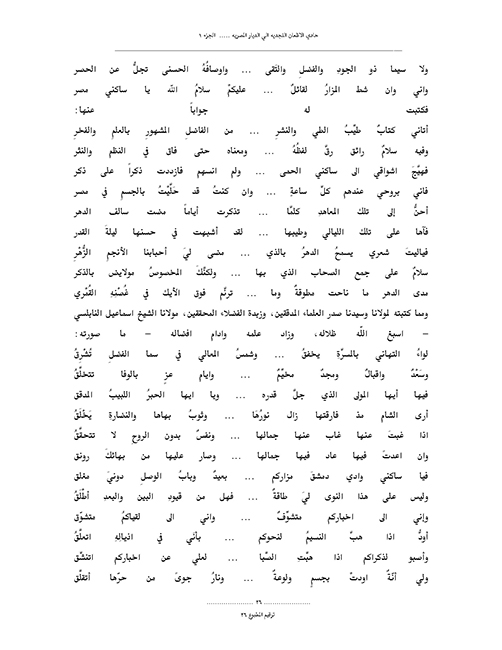 حادي الأظعان النجديه الي الديار المصريه ..... الجزء ١
ولا سيما ذو الجودِ والفضلِ والتقى ... واوصافُهُ الحسنى تجلُّ عن الحصر
واني وان شط المزارُ لقائلٌ ... عليكمْ سلامُ الله يا ساكني مصر
فكتبت له جواباً عنها:
أتاني كتابٌ طيِّبُ الطي والنشرِ ... من الفاضلِ المشهورِ بالعلمِ والفخرِ
وفيه سلامٌ رائق رقَّ لفظُهُ ... ومعناه حتى فاق في النظم والنثر
فهيَّجَ اشواقي الى ساكني الحمى ... ولم انسهم فازددت ذكراً على ذكر
فاني بروحي عندهم كلَّ ساعةٍ ... وان كنتُ قد خلَّيْتُ بالجسمِ في مصر
أحنُّ إلى تلك المعاهدِ كلَّما ... تذكرت أياماً مضت سالف الدهر
فآها على تلك الليالي وطيبها ... لقد أشبهت في حسنها ليلةَ القدر
فياليتَ شعري يسمحُ الدهرُ بالذي ... مضى ليَ أحبابنا الأنجم الزُّهْرِ
سلامٌ على جمع الصحاب الذي بها ... ولكنَّك المخصوصُ مولايَ بالذكر
مدى الدهر ما ناحت مطوقةٌ وما ... ترنَّم فوق الأيك في غُصْنِهِ القُمْري
ومما كتبته لمولانا وسيدنا صدر العلماء المدققين، وزبدة الفضلاء المحققين، مولانا الشيخ اسماعيل النابلسي
– اسبغ اللّه ظلاله، وزاد علمه وادام افضاله – ما صورته:
لواءُ التهاني بالمسرَّةِ يخفقُ ... وشمسُ المعالي في سما الفضلِ تُشْرِقُ
وسَعْدٌ واقبالٌ ومجدٌ مخيَّمٌ ... وايام عزٍ بالوفا تتخلَّقُ
فيها أيها المولى الذي جلَّ قدره ... ويا ايها الحبرُ اللبيبُ المدقق
أرى الشام مذ فارقتها زال نورُها ... وثوبُ بهاها والنضارةِ يَخْلَقُ
اذا غبتَ عنها غاب عنها جمالها ... ونفسٌ بدون الروح لا تتحقَّقُ
وان اعدتَ فيها عاد فيها جمالها ... وصار عليها من بهائكَ رونق
فيا ساكني وادي دمشقَ مزاركم ... بعيدٌ وبابُ الوصلِ دونيَ مغلق
وليس على هذا النوى ليَ طاقةٌ ... فهل من قيودِ البين والبعدِ أُطْلَقُ
وإني الى اخباركم متشوِّفٌ ... واني الى لقياكمُ متشوّق
أودُّ اذا هبَّ النسيمُ لنحوكم ... بأني في اذيالِهِ اتعلَّقُ
وأصبو لذكراكم اذا هبَّتِ الصَّبا ... لعلي عن اخباركم اتنشَّق
ولي أنّةٌ اودتْ بجسمي ولوعةٌ ... ونارُ جوىً من حرّها أتقلَّق
٢٦
ترقيم المطبوع ٢٦